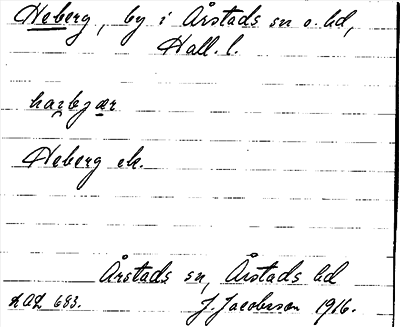 Heberg, by i Årstads sn o. hd,
Hall. l.
Heberg ek.
Årstads sn, Årstads hd
683.
J. Jacobsson 1916.